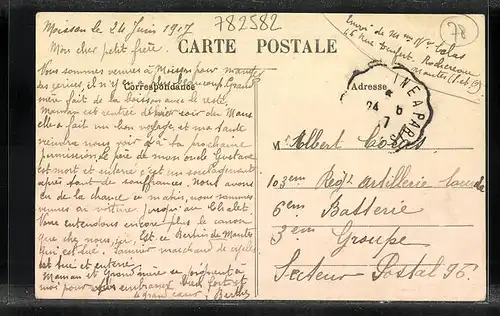 782582
78
Moisson le 24 Juin 1917
Mon cher petit frère.
CARTE POSTALE
Correspondance
Adresse
Nous sommes venues à Moisson pour manger
des cerises, il n'y en a beaucoup Grand
mère fait de la boisson avec le reste.
Maman est rentrée hier soir du Mans
elle a fait un bon voyage, et ma tante
viendra nous voir qd à ta prochaine
permission. Le père de mon oncle Gustave
est mort et enterré c'est un soulagement
après tant de souffrances. Nous avons
eu de la chance ce matin, nous sommes
venues en voiture jusqu'au chalet.
Vous entendons encore plus le canon
que chez nous, ici. Est ce Bertin de Mantes
qui est tué. marchand de
est tué et enterré.
Maman et Grand'mère se joignent à
moi pour embrasser bien fort et
de grand cœur. Berthe
Envoi de
46 Rue
Mantes (S-et-O)
A PARIS
24 6
17
M Albert
103em Regt Artillerie Lourde
6em Batterie
3em Groupe
Secteur Postal 95.